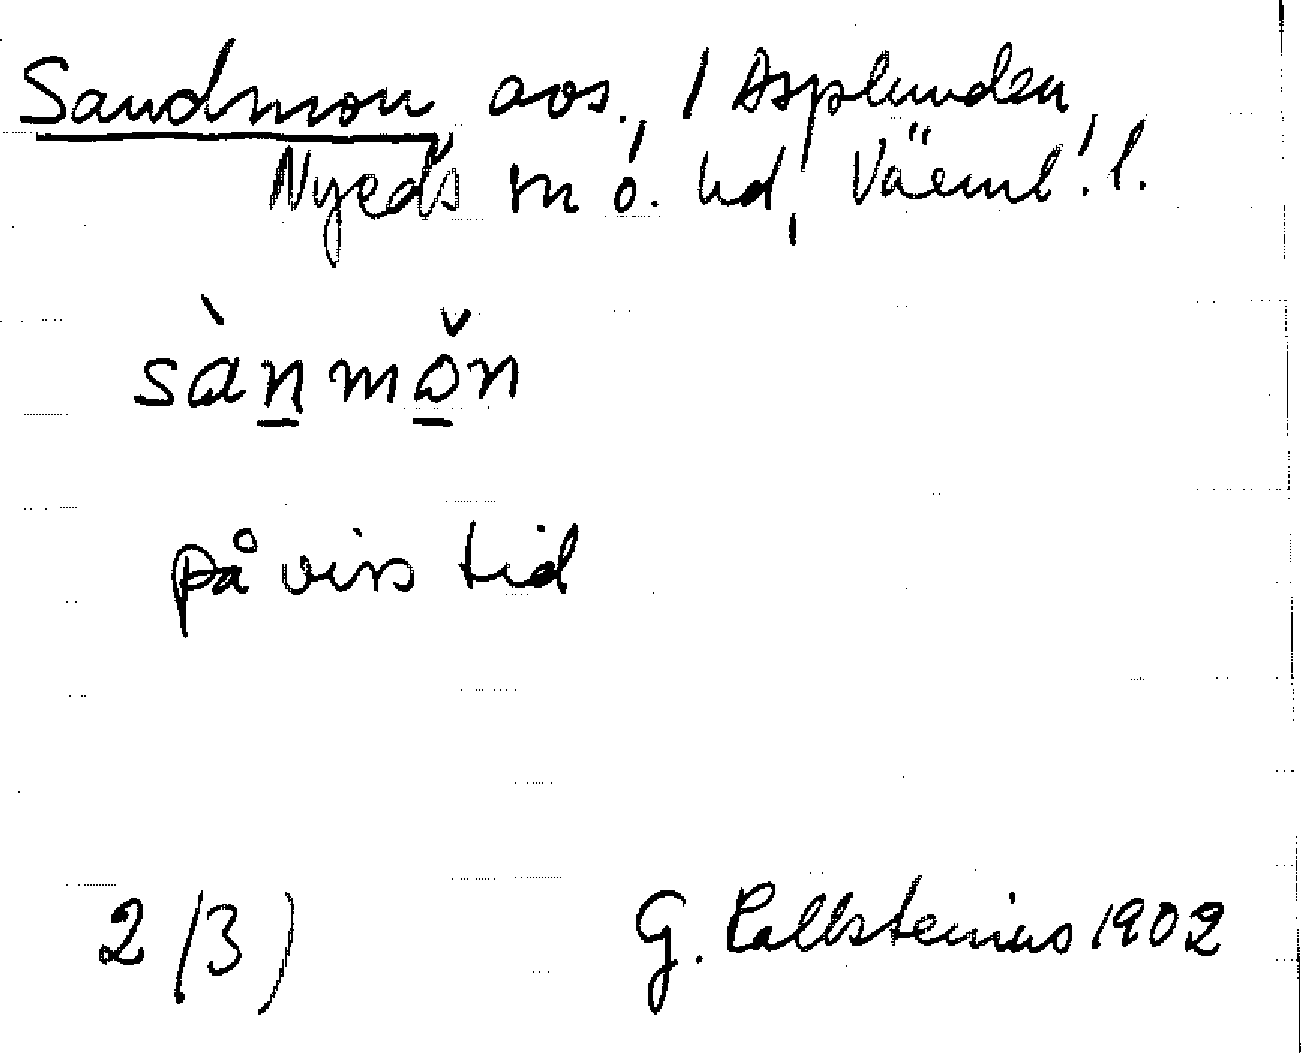 Sandmon avs., / Asplunden,
Nyeds sn ö. hd, Värml. l.
sànmǒn
på viss tid
2/3) G. Kallstenius 1902